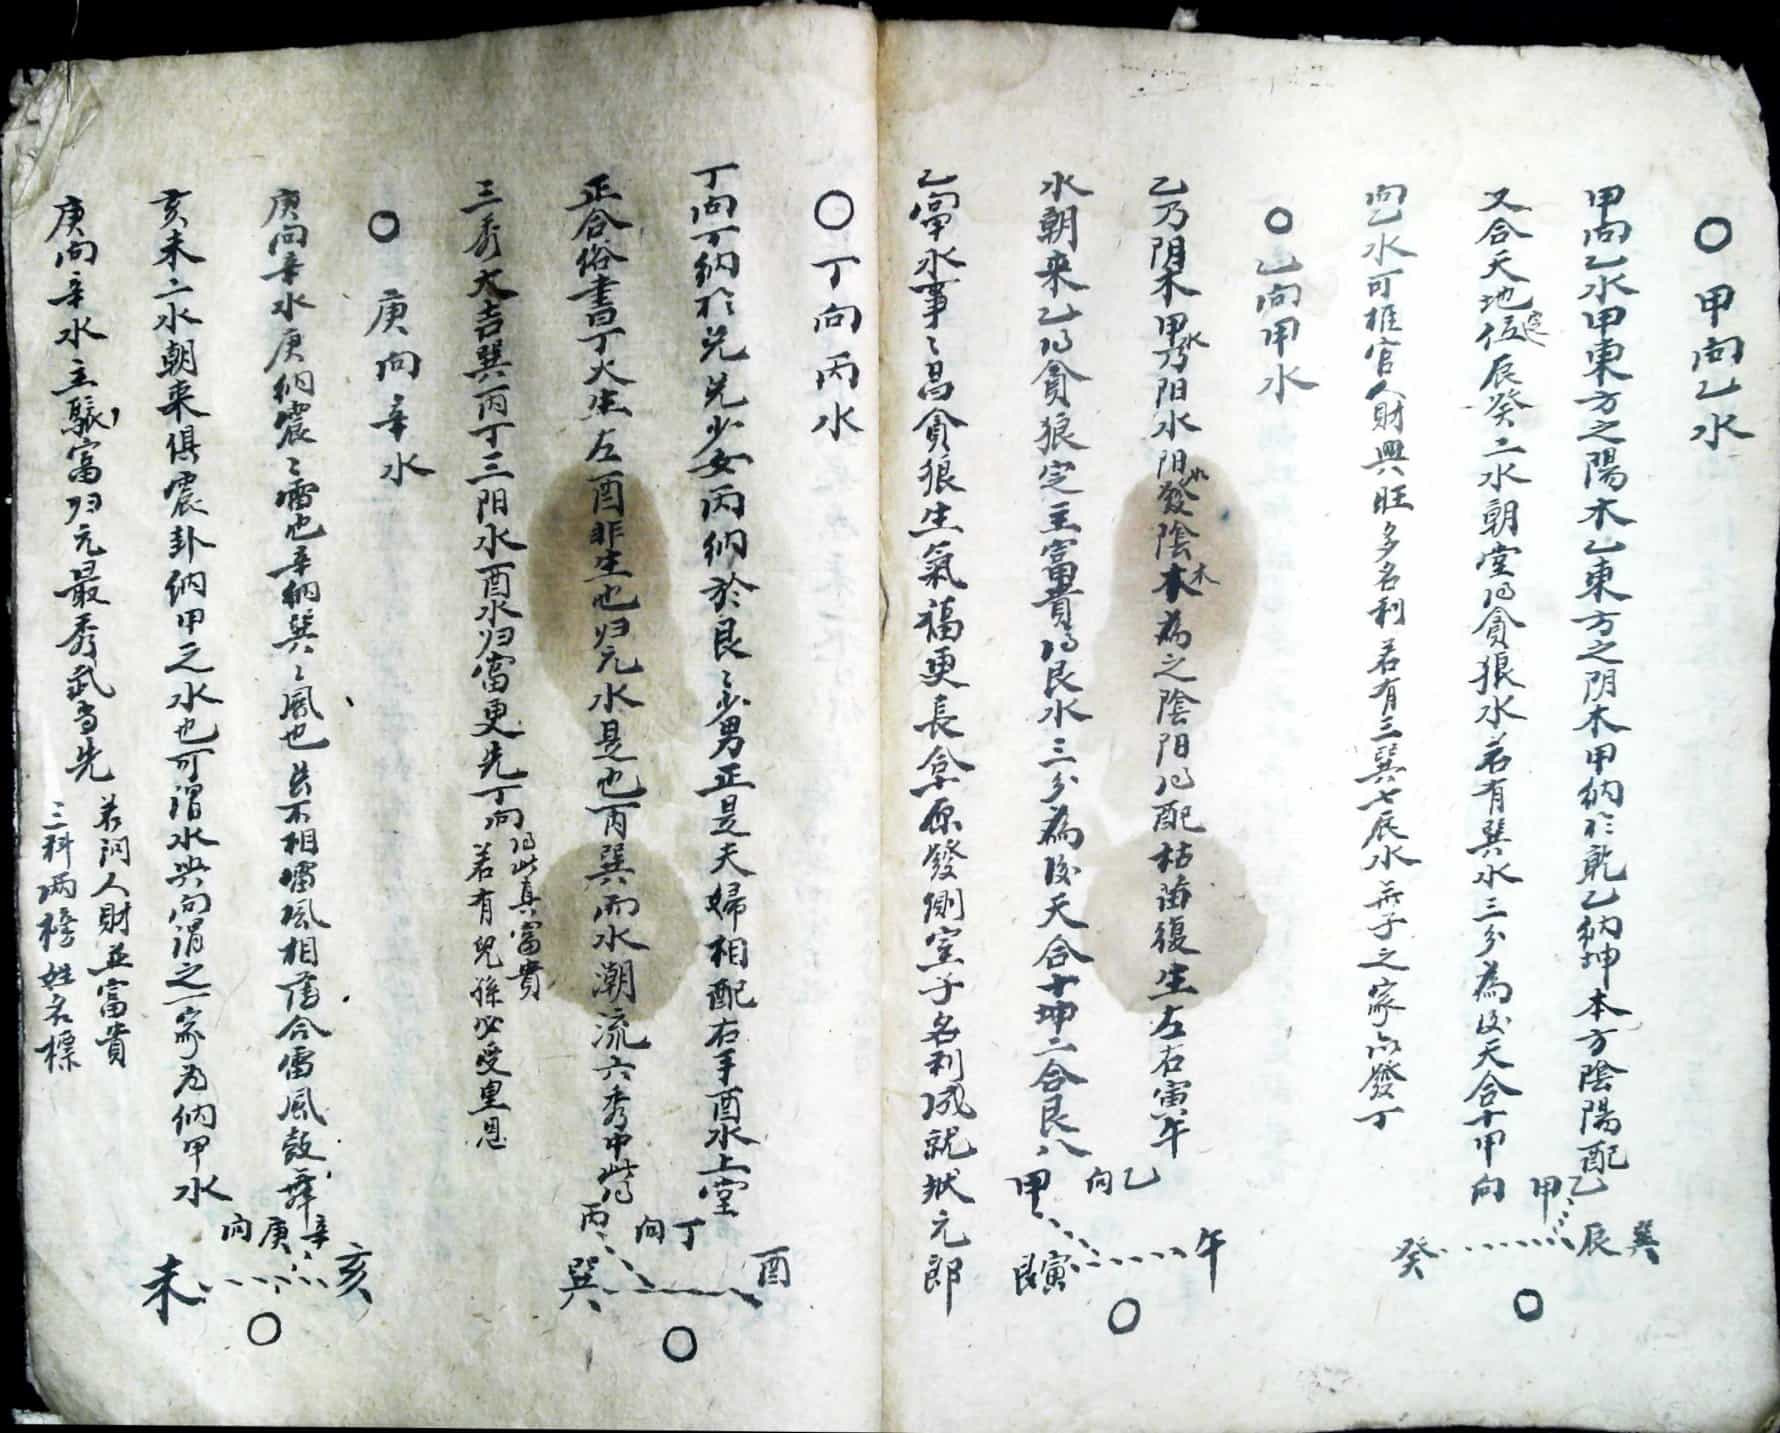 ○甲向乙水
甲向乙水甲東方之陽木乙東方之阴木甲納於乾乙納坤本方陰陽配
又合天地定位辰癸二水朝堂得貪狼水若有巽水三分為後天合十甲向
向乙水可催官人財興旺多名利若有三巽七辰水無子之家亦發丁
甲 乙
辰 巽
癸
○
○乙向甲水
乙乃阴木甲水乃阳水阳水發陰木為之陰阳得配枯苗復生左右寅午
水朝來乙得貪狼定主富貴得艮水三分為後天合十坤二合艮八
乙向甲水事〻昌貪狼生氣福更長拿原發側室子名利成就状元郎
乙向 甲
午 寅 艮
○
○丁向丙水
丁向丁納於兑兑少女丙納於艮〻少男正是夫婦相配右手酉水上堂
正合俗書曰丁火生左酉非生也归元水是也丙巽两水潮流六秀中此得
三秀大吉巽丙丁三阳水酉水归當更先丁向得此真富貴
若有兒孫必受皇恩
丁向 丙
酉 巽
○
○庚向辛水
庚向辛水庚納震〻雷也辛納巽〻風也長不相雷風相薄合雷風鼓舞
亥未二水朝來俱震卦納甲之水也可謂水與向谓之一家為納甲水
庚向辛水主驟富归元最秀武为先
若問人財並富貴
三科两榜姓名標
辛 庚向
亥 未
○